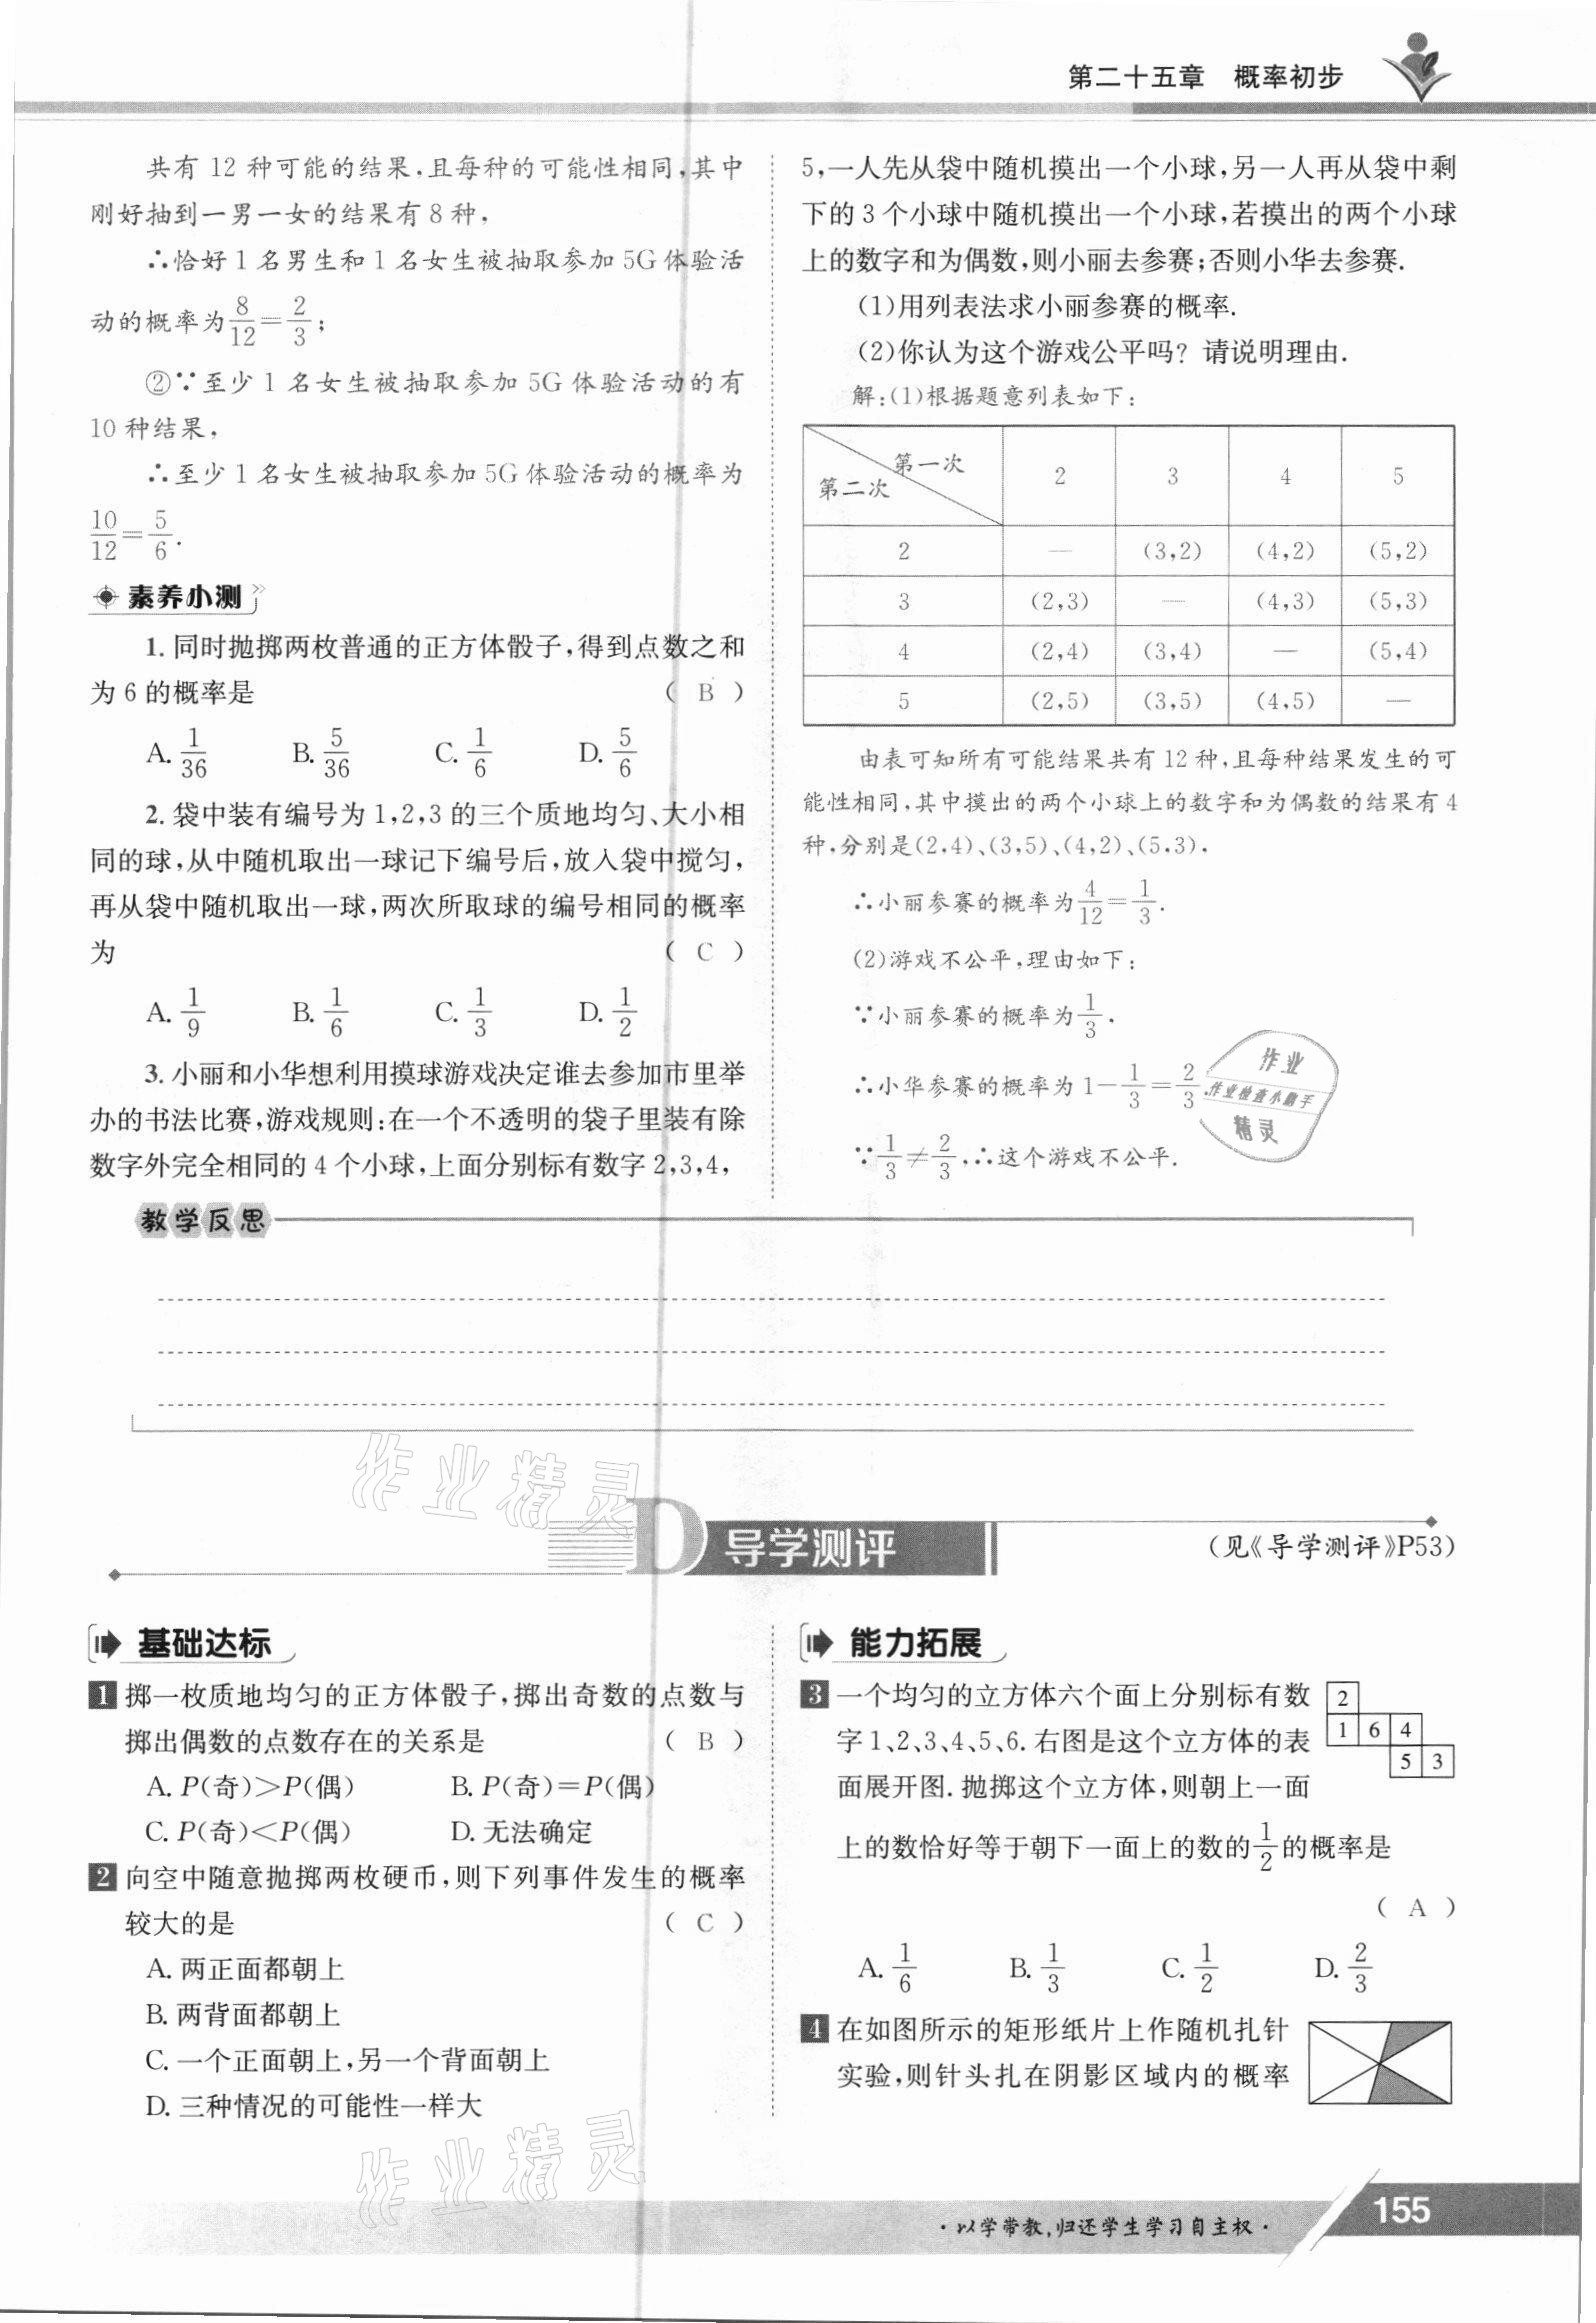 第二十五章 概率初步
共有 12 种可能的结果,且每种的可能性相同,其中
刚好抽到一男一女的结果有 8 种,
∴恰好 1 名男生和 1 名女生被抽取参加 5G 体验活
动的概率为 8/12 = 2/3;
②∵至少 1 名女生被抽取参加 5G 体验活动的有
10 种结果,
∴至少 1 名女生被抽取参加 5G 体验活动的概率为
10/12 = 5/6.
素养小测
1. 同时抛掷两枚普通的正方体骰子,得到点数之和
为 6 的概率是 ( B )
A. 1/36 B. 5/36 C. 1/6 D. 5/6
2. 袋中装有编号为 1,2,3 的三个质地均匀、大小相
同的球,从中随机取出一球记下编号后,放入袋中搅匀,
再从袋中随机取出一球,两次所取球的编号相同的概率
为 ( C )
A. 1/9 B. 1/6 C. 1/3 D. 1/2
3. 小丽和小华想利用摸球游戏决定谁去参加市里举
办的书法比赛,游戏规则:在一个不透明的袋子里装有除
数字外完全相同的 4 个小球,上面分别标有数字 2,3,4,
5,一人先从袋中随机摸出一个小球,另一人再从袋中剩
下的 3 个小球中随机摸出一个小球,若摸出的两个小球
上的数字和为偶数,则小丽去参赛;否则小华去参赛.
(1)用列表法求小丽参赛的概率.
(2)你认为这个游戏公平吗? 请说明理由.
解:(1)根据题意列表如下:
第一次 第二次 2 3 4 5
2 — (3,2) (4,2) (5,2)
3 (2,3) — (4,3) (5,3)
4 (2,4) (3,4) — (5,4)
5 (2,5) (3,5) (4,5) —
由表可知所有可能结果共有 12 种,且每种结果发生的可
能性相同,其中摸出的两个小球上的数字和为偶数的结果有 4
种,分别是(2,4)、(3,5)、(4,2)、(5,3).
∴小丽参赛的概率为 4/12 = 1/3.
(2)游戏不公平,理由如下:
∵小丽参赛的概率为 1/3.
∴小华参赛的概率为 1 - 1/3 = 2/3.
∵ 1/3 ≠ 2/3,∴这个游戏不公平.
作业
作业检查小助手
精灵
教学反思
作业精灵
D 导学测评
(见《导学测评》P53)
基础达标
1 掷一枚质地均匀的正方体骰子,掷出奇数的点数与
掷出偶数的点数存在的关系是 ( B )
A. P(奇)>P(偶) B. P(奇)=P(偶)
C. P(奇)<P(偶) D. 无法确定
2 向空中随意抛掷两枚硬币,则下列事件发生的概率
较大的是 ( C )
A. 两正面都朝上
B. 两背面都朝上
C. 一个正面朝上,另一个背面朝上
D. 三种情况的可能性一样大
能力拓展
3 一个均匀的立方体六个面上分别标有数
字 1、2、3、4、5、6. 右图是这个立方体的表
面展开图. 抛掷这个立方体,则朝上一面
上的数恰好等于朝下一面上的数的 1/2 的概率是
( A )
2
1 6 4
5 3
A. 1/6 B. 1/3 C. 1/2 D. 2/3
4 在如图所示的矩形纸片上作随机扎针
实验,则针头扎在阴影区域内的概率
作业精灵
·以学带教,归还学生学习自主权·
155